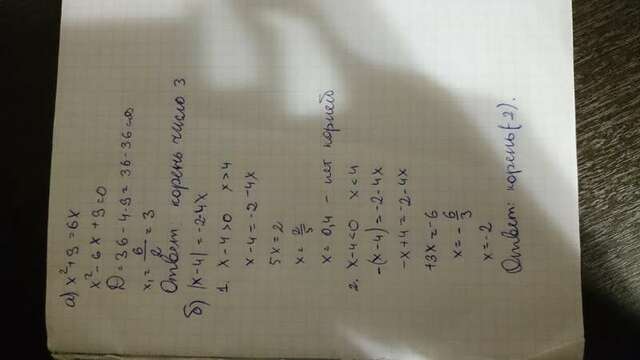 а) x²+9=6x
x²-6x+9=0
D=36-4·9=36-36=0
x₁=6/2=3
Ответ: корень число 3
б) |x-4|=-2-4x
1. x-4>0 x>4
x-4=-2-4x
5x=2
x=2/5
x=0,4 - нет корней
2. x-4<0 x<4
-(x-4)=-2-4x
-x+4=-2-4x
+3x=-6
x=-6/3
x=-2
Ответ: корень(-2).